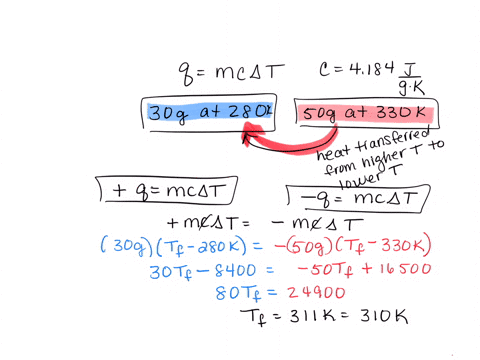 q = mcΔT    c = 4.184 J/g·K
30g at 280K    50g at 330K
heat transferred
from higher T to
lower T
+ q = mcΔT    -q = mcΔT
+mcΔT = -mcΔT
(30g)(Tf-280K) = -(50g)(Tf-330K)
30Tf-8400 = -50Tf+16500
80Tf = 24900
Tf = 311K = 310K